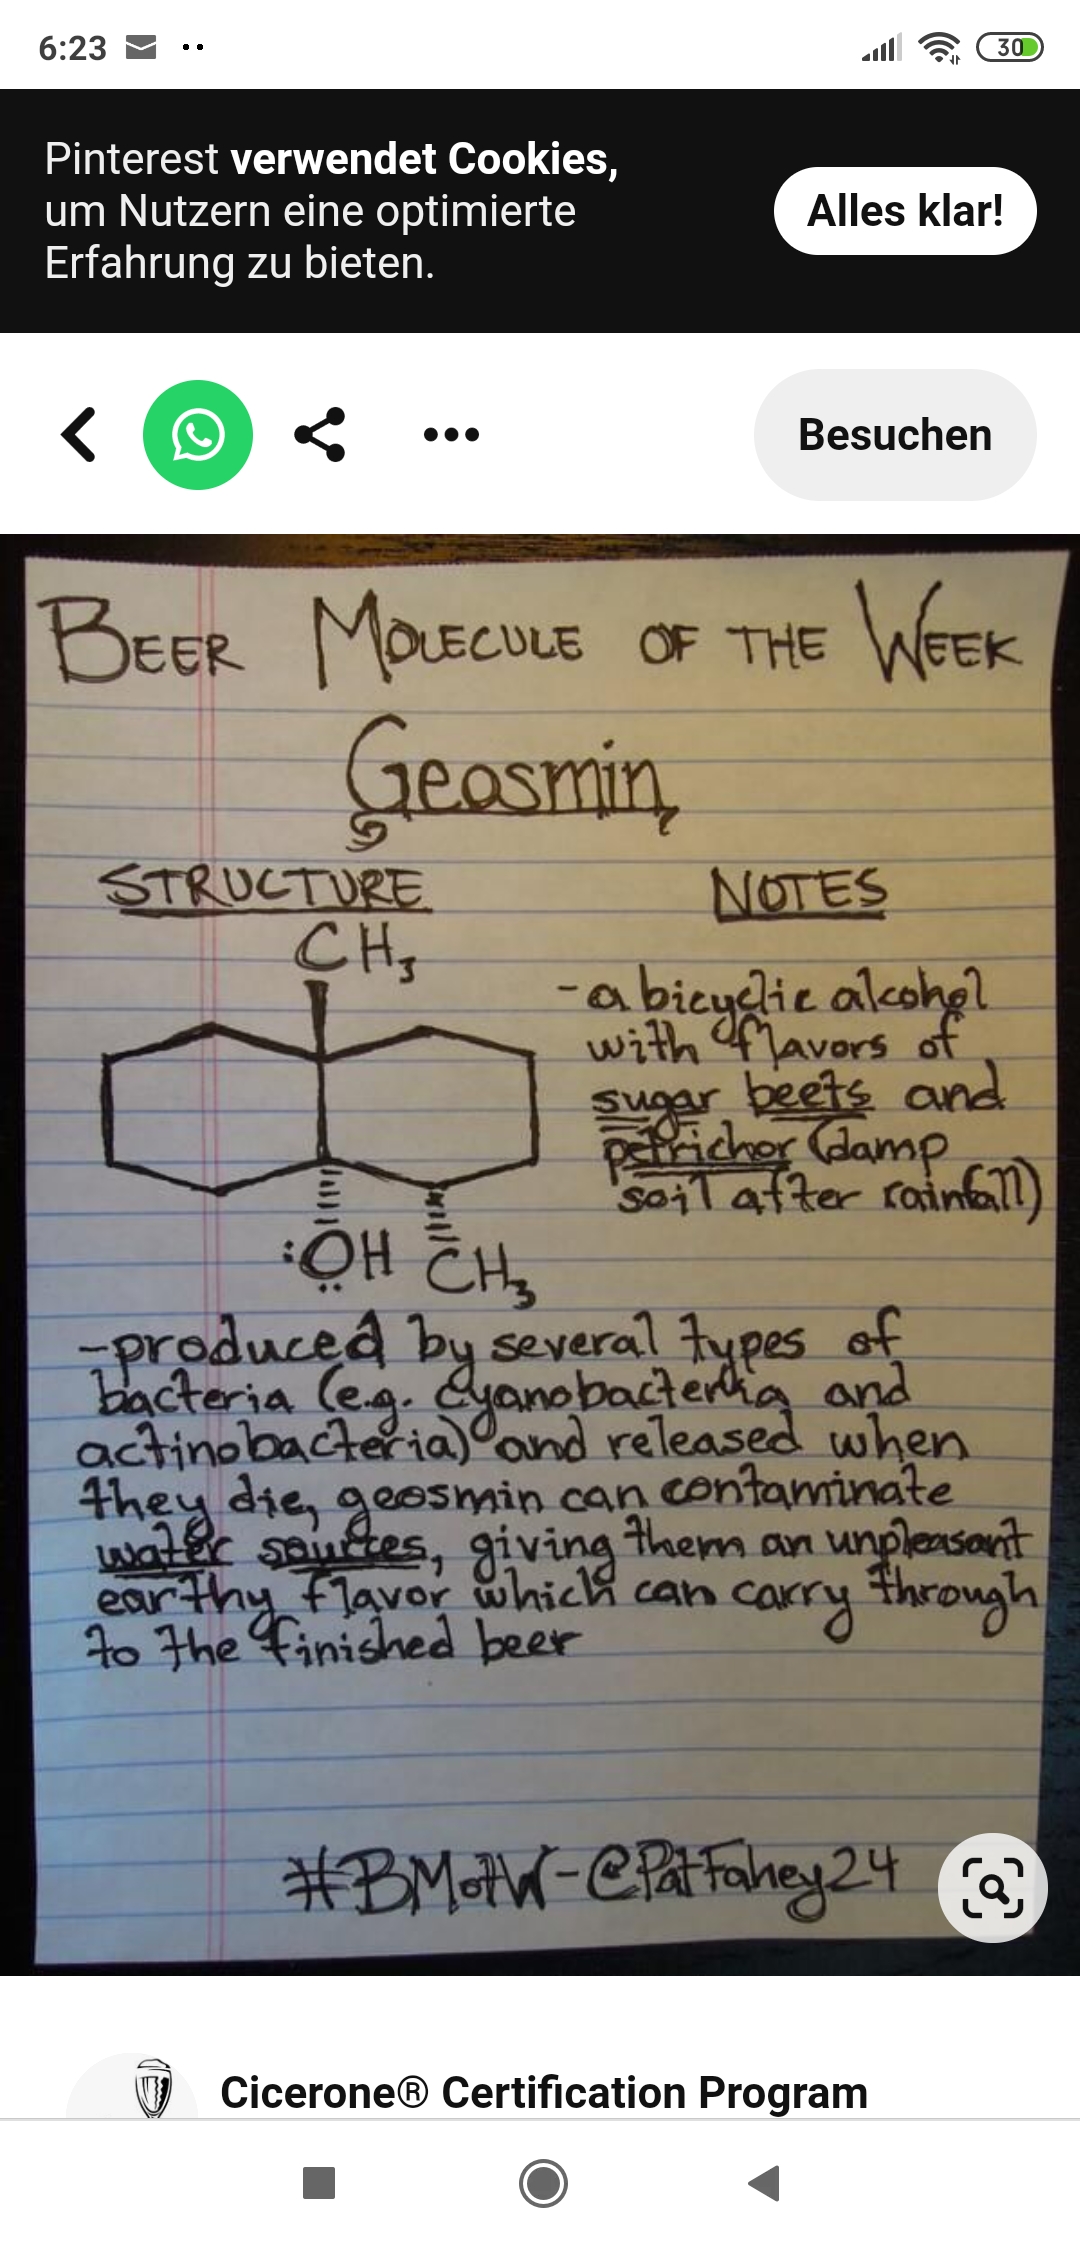 6:23
30
Pinterest verwendet Cookies,
um Nutzern eine optimierte
Erfahrung zu bieten.
Alles klar!
Besuchen
BEER MOLECULE OF THE WEEK
Geosmin
STRUCTURE
NOTES
CH₃
-a bicyclic alcohol
with flavors of
sugar beets and
petrichor (damp
soil after rainfall)
:OH CH₃
-produced by several types of
bacteria (e.g. cyanobacteria and
actinobacteria) and released when
they die, geosmin can contaminate
water sources, giving them an unpleasant
earthy flavor which can carry through
to the finished beer
#BMotW-@PatFahey24
Cicerone® Certification Program